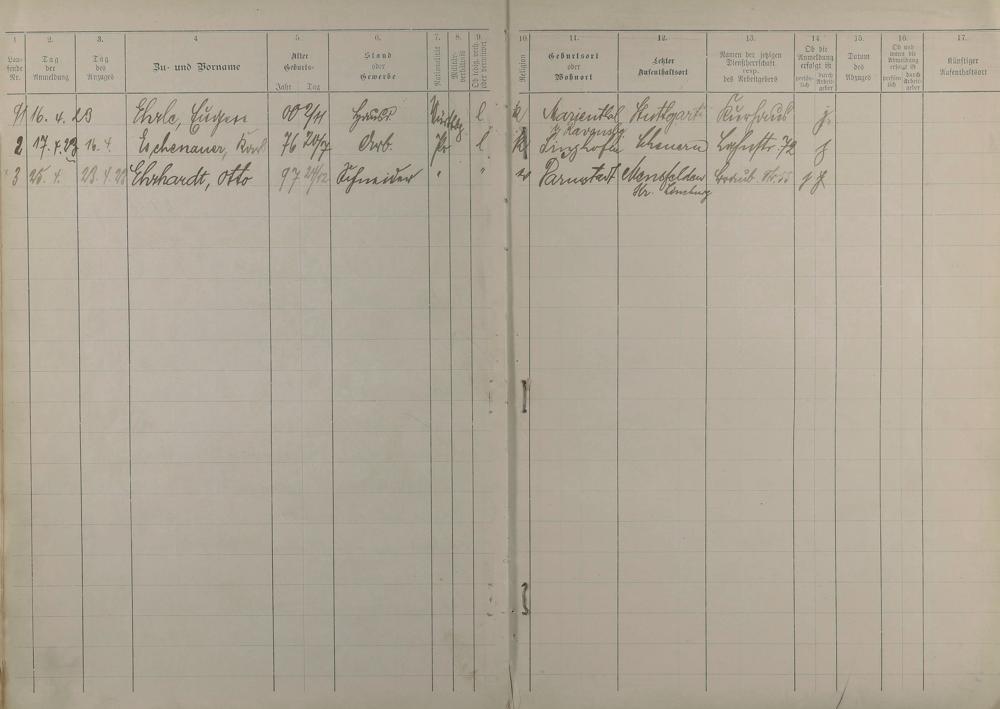 1. 2. 3. 4 5. 6. 7. 8. 9. 10. 11. 12. 13. 14. 15. 16. 17.
Lau-fende Nr. Tag der Anmeldung Tag des Anzuges Zu- und Vorname Alter Geburts- Jahr Tag Stand oder Gewerbe Nationalität Militär-verhältnis Ob ledig, verh. oder verwitwet Religion Geburtsort oder Wohnort Letzter Aufenthaltsort Namen der jetzigen Dienstherrschaft resp. des Arbeitgebers Ob die Anmeldung erfolgt ist persön-lich durch Arbeit-geber Datum des Abzuges Ob und wann die Abmeldung erfolgt ist persön-lich durch Arbeit-geber Künftiger Aufenthaltsort
1 16. 4. 23 Ehrle, Eugen 00 2/11 l k Marienthal Stuttgart Kurhaus j.
2 17. 4. 23 16. 4. Eschenauer, Karl 76 20/7 Arb. Pr l k Scheuern 72 j
3 25. 4. 23. 4. 23 Ehrhardt, Otto 97 24/12 Schneider " " Darmstadt Mensfelden j j
Kr. Limburg